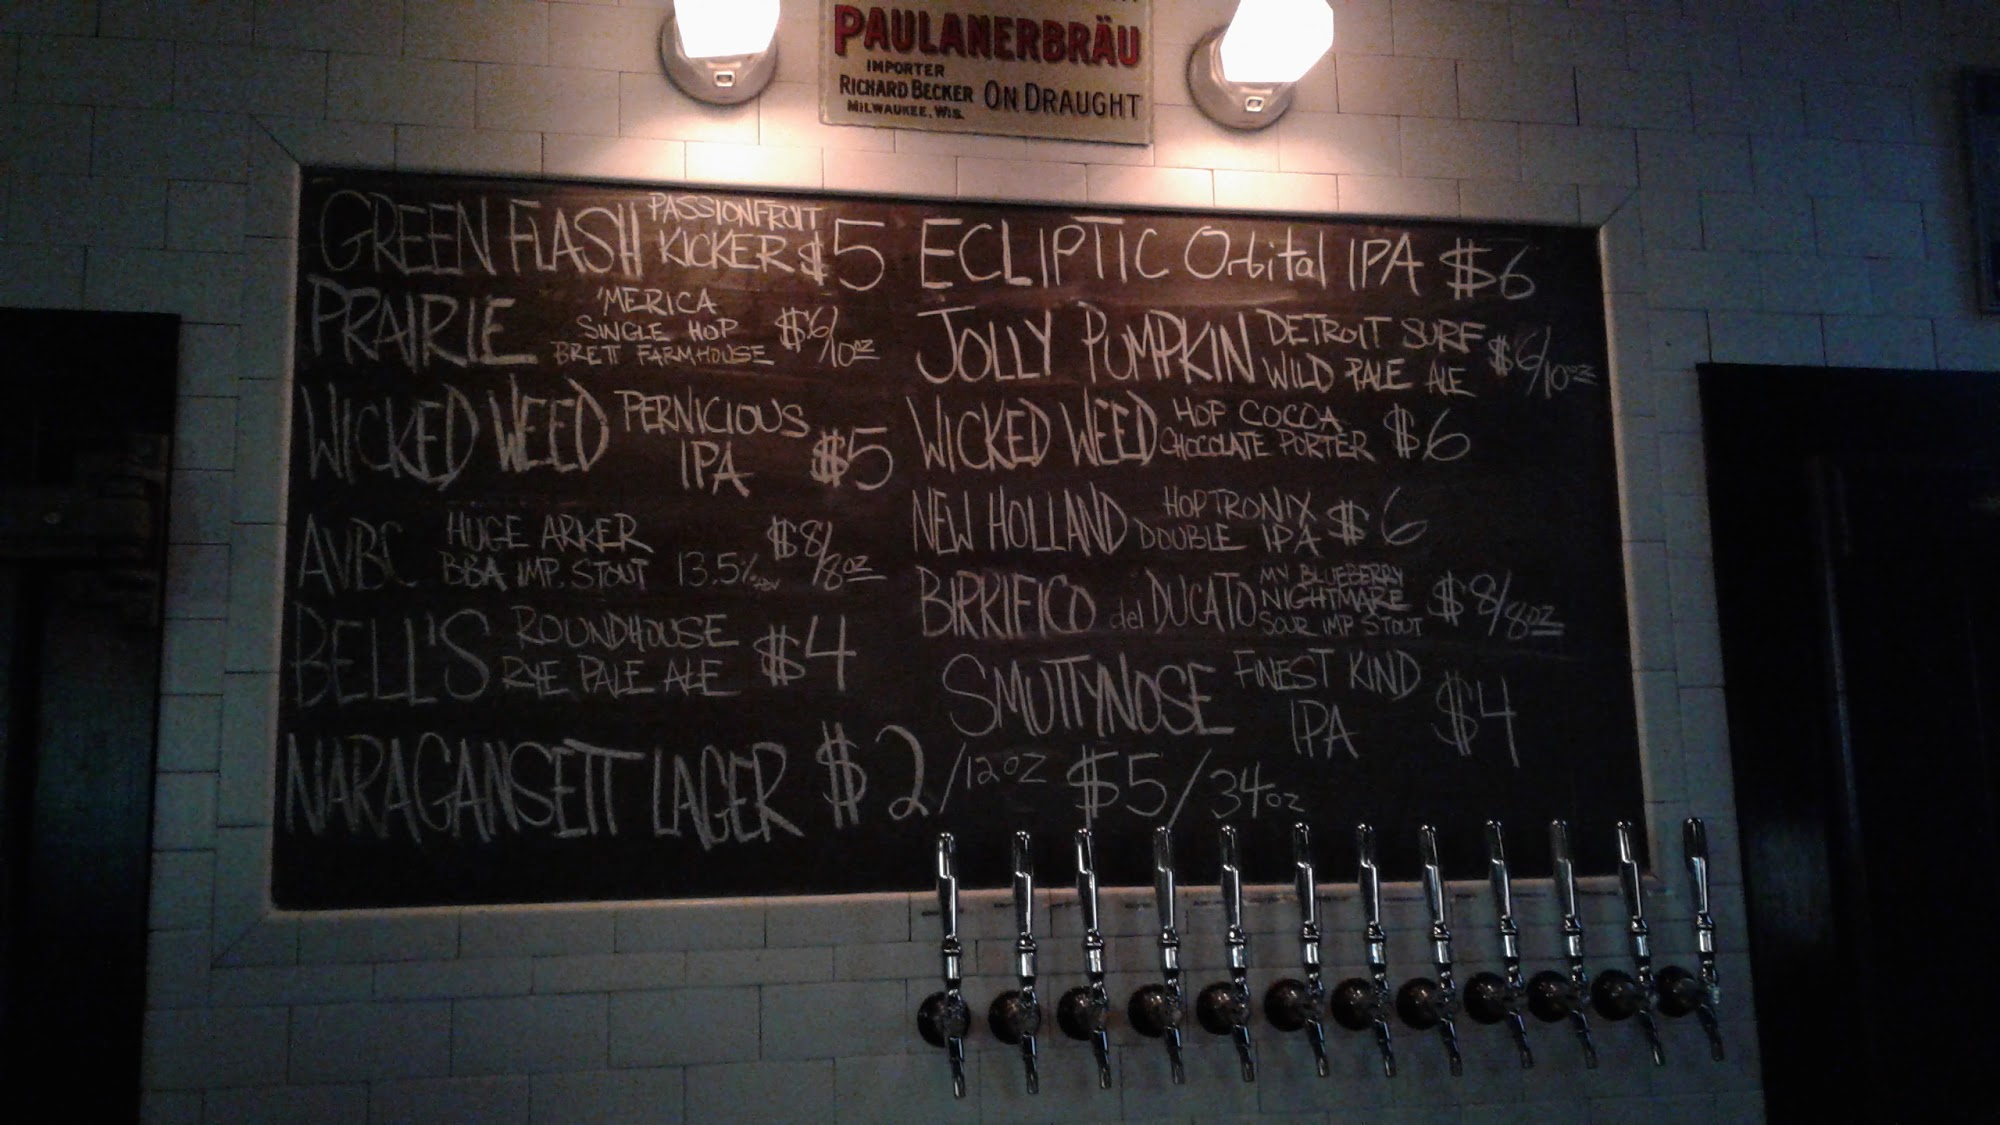 PAULANERBRÄU
IMPORTER
RICHARD BECKER ON DRAUGHT
MILWAUKEE, WIS.
GREEN FLASH PASSIONFRUIT KICKER $5
PRAIRIE 'MERICA SINGLE HOP BRETT FARMHOUSE $6/10oz
WICKED WEED PERNICIOUS IPA $5
AVBC HUGE ARKER BBA IMP. STOUT 13.5% ABV $8/8oz
BELL'S ROUNDHOUSE RYE PALE ALE $4
NARAGANSETT LAGER $2/12oz $5/34oz
ECLIPTIC Orbital IPA $6
JOLLY PUMPKIN DETROIT SURF WILD PALE ALE $6/10oz
WICKED WEED HOP COCOA CHOCOLATE PORTER $6
NEW HOLLAND HOPTRONIX DOUBLE IPA $6
BIRRIFICO del DUCATO MY BLUEBERRY NIGHTMARE SOUR IMP STOUT $8/8oz
SMUTTYNOSE FINEST KIND IPA $4